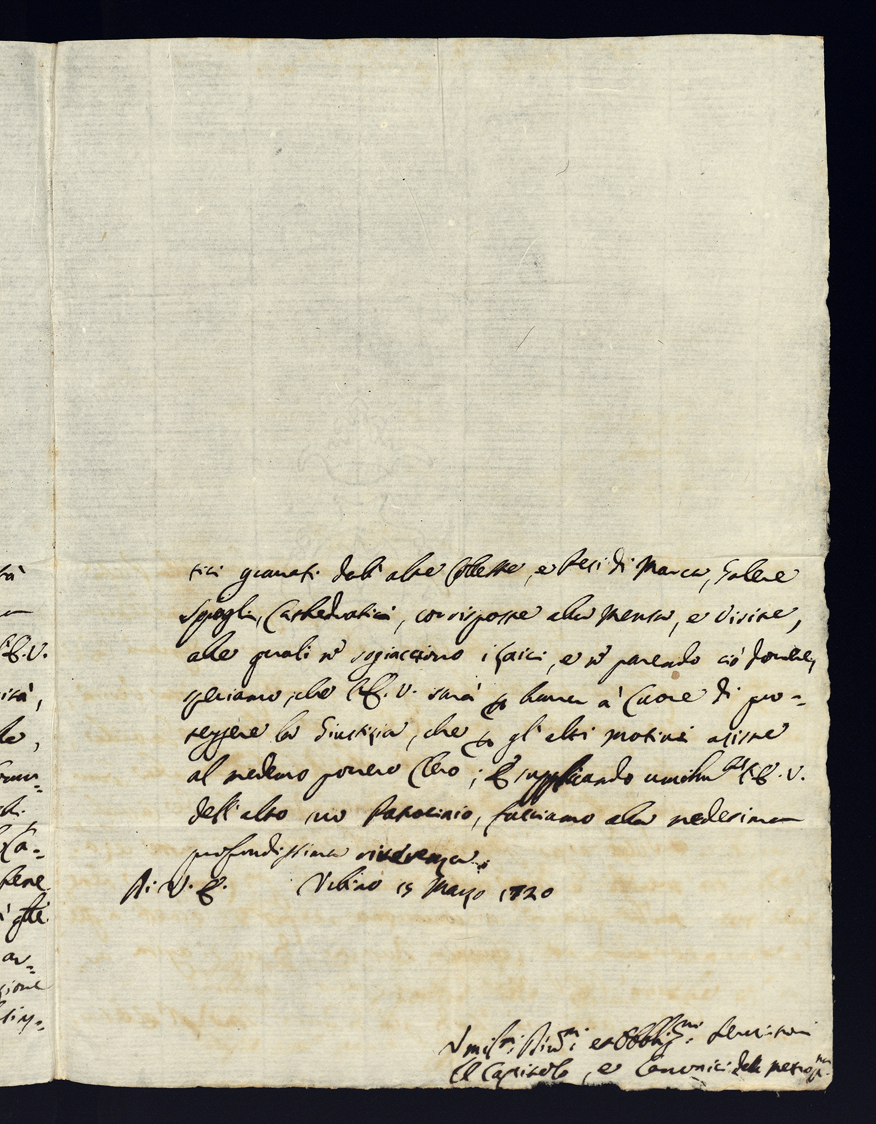 tici gravati dall' altre Collette, e Pesi di Marca, Galere
Spoglij, Cathedratici, corrisposte alla Mensa, e Visite,
alle quali nō sogiacciono i Laici, e nō parendo ciò dovere,
speriamo, che l'E. V. sarà p havere à Cuore di pro=
teggere la Giustizia, che p gl' altri motivi assiste
al medemo povero Clero; E supplicando umilm.te l'E. V.
dell' alto suo Patrocinio, facciamo alla medesima
profondissima riverenza.
Di V. E. Urbino 15 Marzo 1720
Umiss.mi Div.mi et Obblig.mi Servitori
Il Capitolo, e Canonici della Metrop.na
tà
l'E. V.